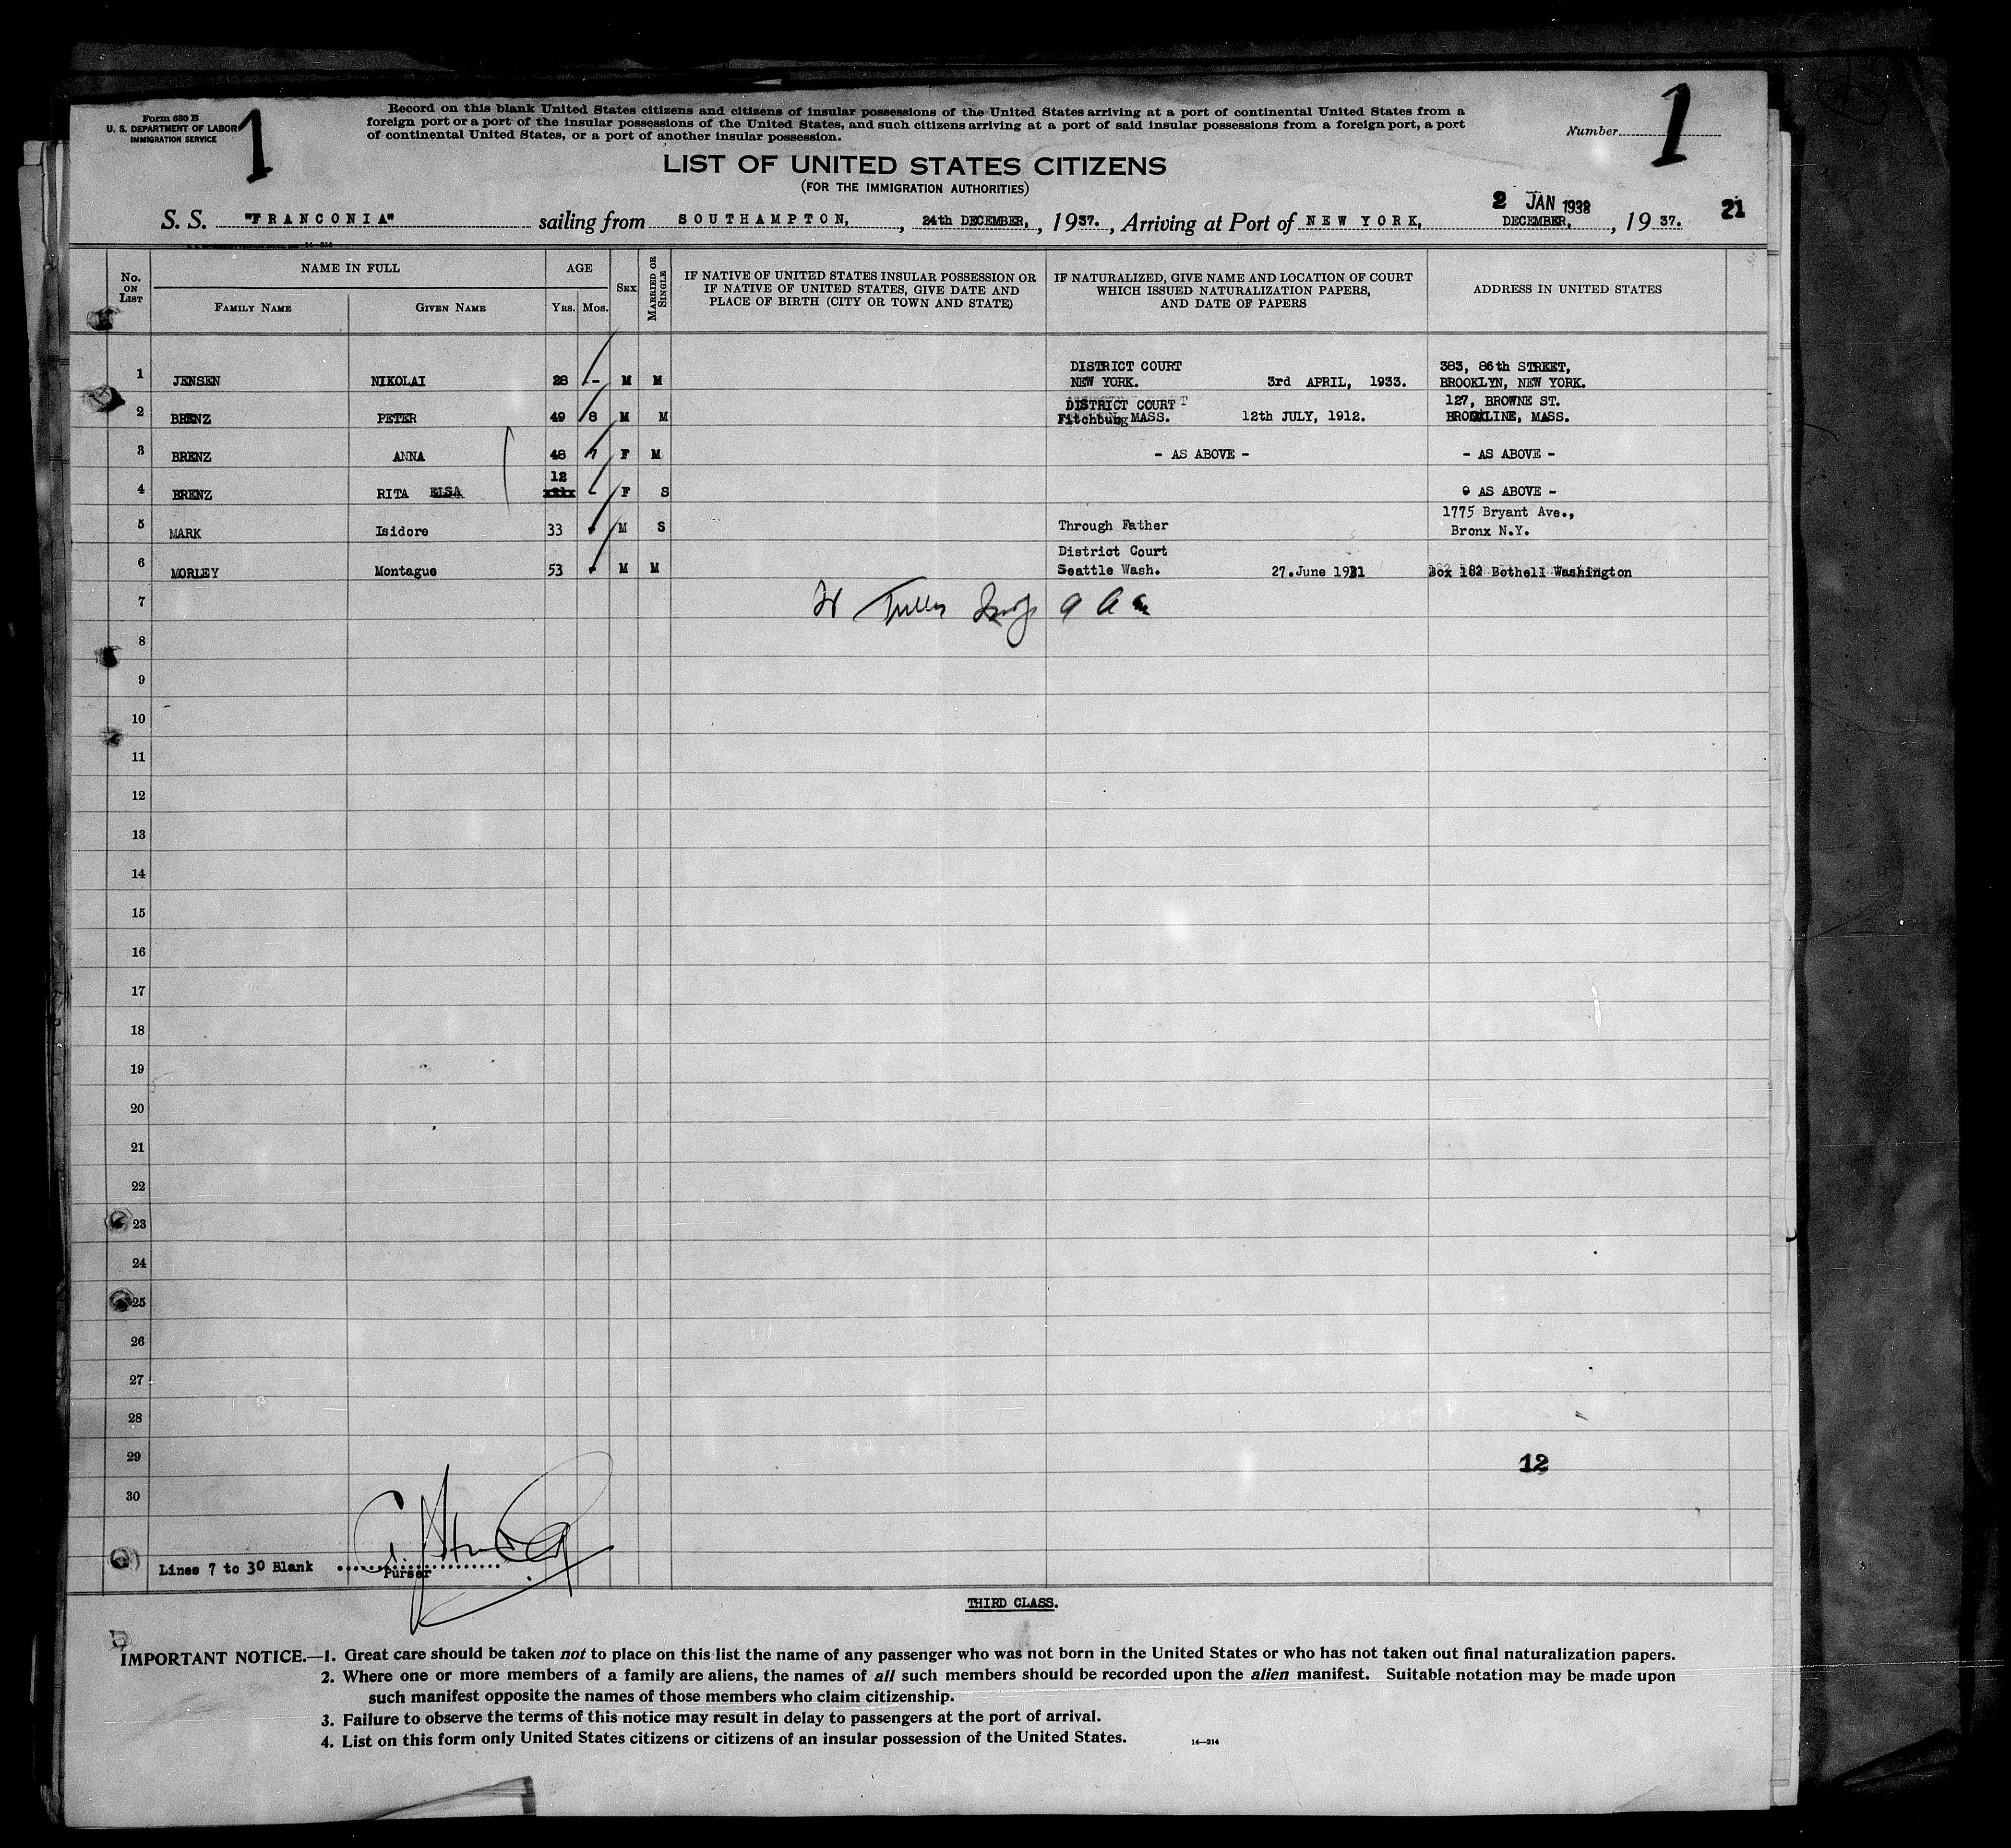 Form 630 B
U. S. DEPARTMENT OF LABOR
IMMIGRATION SERVICE
1
Record on this blank United States citizens and citizens of insular possessions of the United States arriving at a port of continental United States from a
foreign port or a port of the insular possessions of the United States, and such citizens arriving at a port of said insular possessions from a foreign port, a port
of continental United States, or a port of another insular possession.
Number 1
LIST OF UNITED STATES CITIZENS
(FOR THE IMMIGRATION AUTHORITIES)
2 JAN 1938
S. S. "FRANCONIA" sailing from SOUTHAMPTON, , 24th DECEMBER, , 1937. , Arriving at Port of NEW YORK, DECEMBER, , 19 37. 21
No. ON LIST
NAME IN FULL
FAMILY NAME GIVEN NAME
AGE
YRS. MOS.
SEX
MARRIED OR SINGLE
IF NATIVE OF UNITED STATES INSULAR POSSESSION OR
IF NATIVE OF UNITED STATES, GIVE DATE AND
PLACE OF BIRTH (CITY OR TOWN AND STATE)
IF NATURALIZED, GIVE NAME AND LOCATION OF COURT
WHICH ISSUED NATURALIZATION PAPERS,
AND DATE OF PAPERS
ADDRESS IN UNITED STATES
DISTRICT COURT 383, 86th STREET,
1 JENSEN NIKOLAI 28 - M M NEW YORK. 3rd APRIL, 1933. BROOKLYN, NEW YORK.
DISTRICT COURT 127, BROWNE ST.
2 BRENZ PETER 49 8 M M Fitchburg MASS. 12th JULY, 1912. BROOKLINE, MASS.
3 BRENZ ANNA 48 7 F M - AS ABOVE - - AS ABOVE -
12
4 BRENZ RITA ELSA - F S 9 AS ABOVE -
1775 Bryant Ave.,
5 MARK Isidore 33 M S Through Father Bronx N.Y.
District Court
6 MORLEY Montague 53 M M Seattle Wash. 27.June 1921 Box 182 Bothell Washington
7
8
9
10
11
12
13
14
15
16
17
18
19
20
21
22
23
24
25
26
27
28
29 12
30
Lines 7 to 30 Blank
Purser
THIRD CLASS.
IMPORTANT NOTICE.—1. Great care should be taken not to place on this list the name of any passenger who was not born in the United States or who has not taken out final naturalization papers.
2. Where one or more members of a family are aliens, the names of all such members should be recorded upon the alien manifest. Suitable notation may be made upon
such manifest opposite the names of those members who claim citizenship.
3. Failure to observe the terms of this notice may result in delay to passengers at the port of arrival.
4. List on this form only United States citizens or citizens of an insular possession of the United States.
14—214